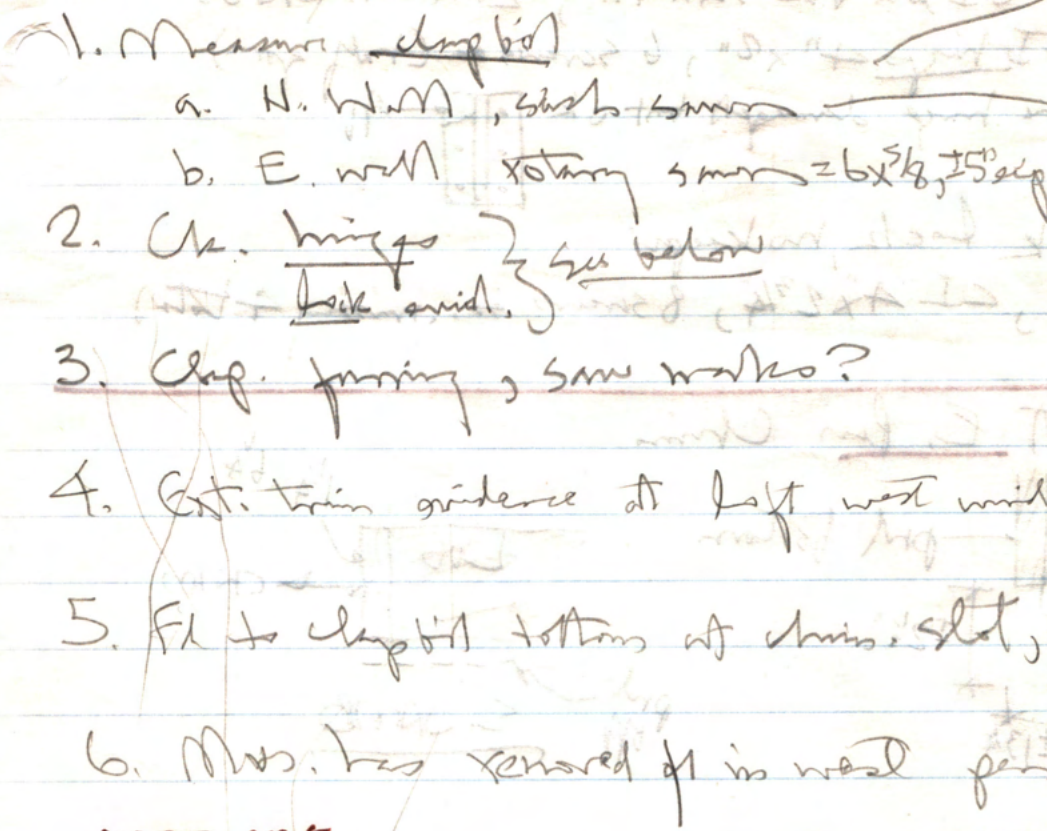 1. Measure clapb'd
a. N. Wall, sash sawn
b. E. wall rotary sawn = 6x5/8, ±5" exp
2. Ck. hinges
lock evid. } See below
3. Clap. furring, saw marks?
4. Ext. trim evidence at loft west wind
5. Fl to clapb'd bottoms at chim. slot,
6. has removed in west